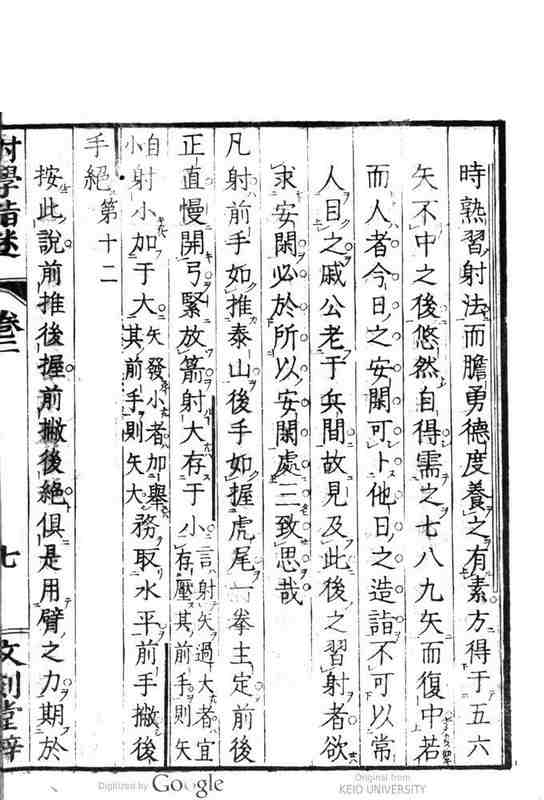 時熟習射法而膽勇德度養之有素方得于五六
矢不中之後悠然自得需之七八九矢而復中若
而人者今日之安閑可卜他日之造詣不可以常
人目之戚公老于兵間故見及此後之習射者欲
求安閑必於所以安閑處三致思哉
凡射前手如推泰山後手如握虎尾一拳主定前後
正直慢開弓緊放箭射大存于小言射矢過大者宜存壓其前手則矢
自小射小加于大矢發小者加舉其前手則矢大務取水平前手撇後
手絕第十二
按此說前推後握前撇後絕俱是用臂之力期於
射學指迷 卷二 七
Digitized by Google
Original from
KEIO UNIVERSITY